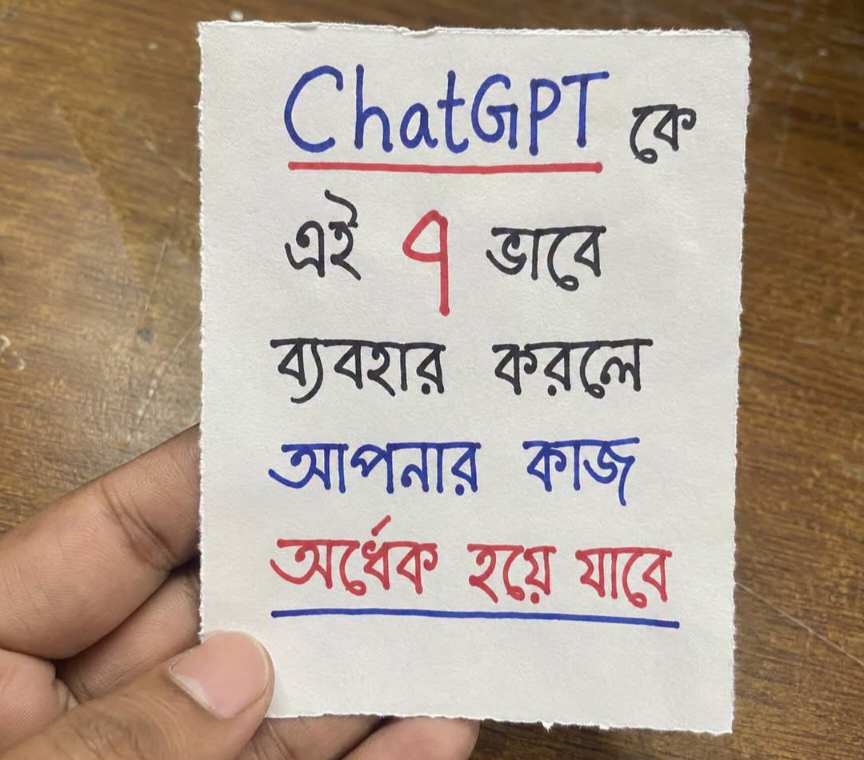 ChatGPT কে
এই ৭ ভাবে
ব্যবহার করলে
আপনার কাজ
অর্ধেক হয়ে যাবে